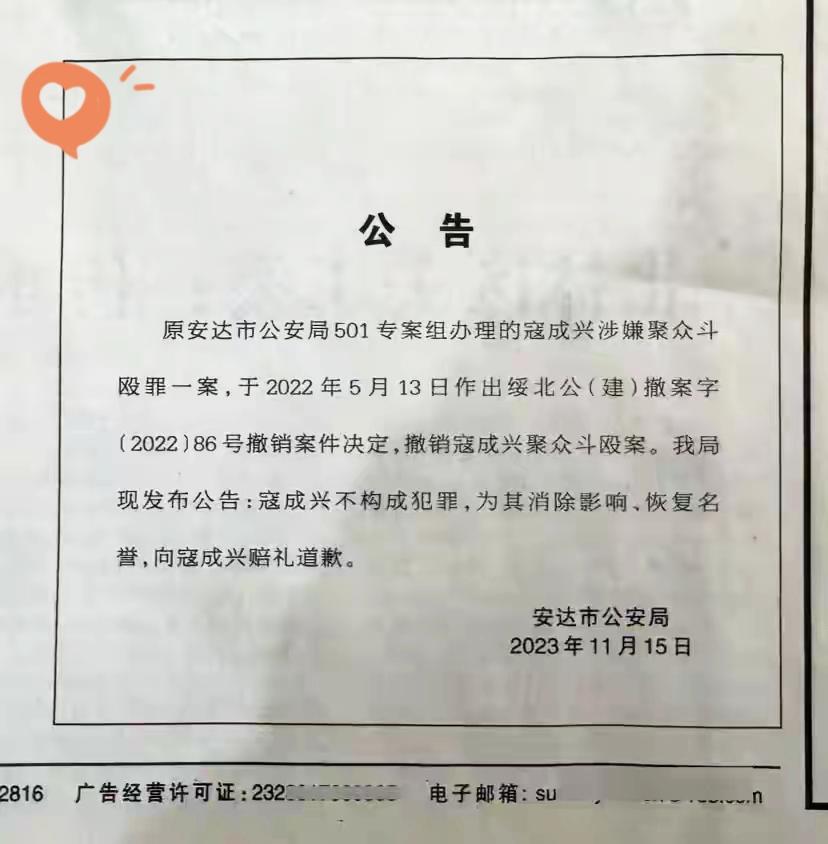 公 告
原安达市公安局501专案组办理的寇成兴涉嫌聚众斗
殴罪一案,于2022年5月13日作出绥北公(建)撤案字
〔2022〕86号撤销案件决定,撤销寇成兴聚众斗殴案。我局
现发布公告:寇成兴不构成犯罪,为其消除影响、恢复名
誉,向寇成兴赔礼道歉。
安达市公安局
2023年11月15日
2816 广告经营许可证:232 电子邮箱: su